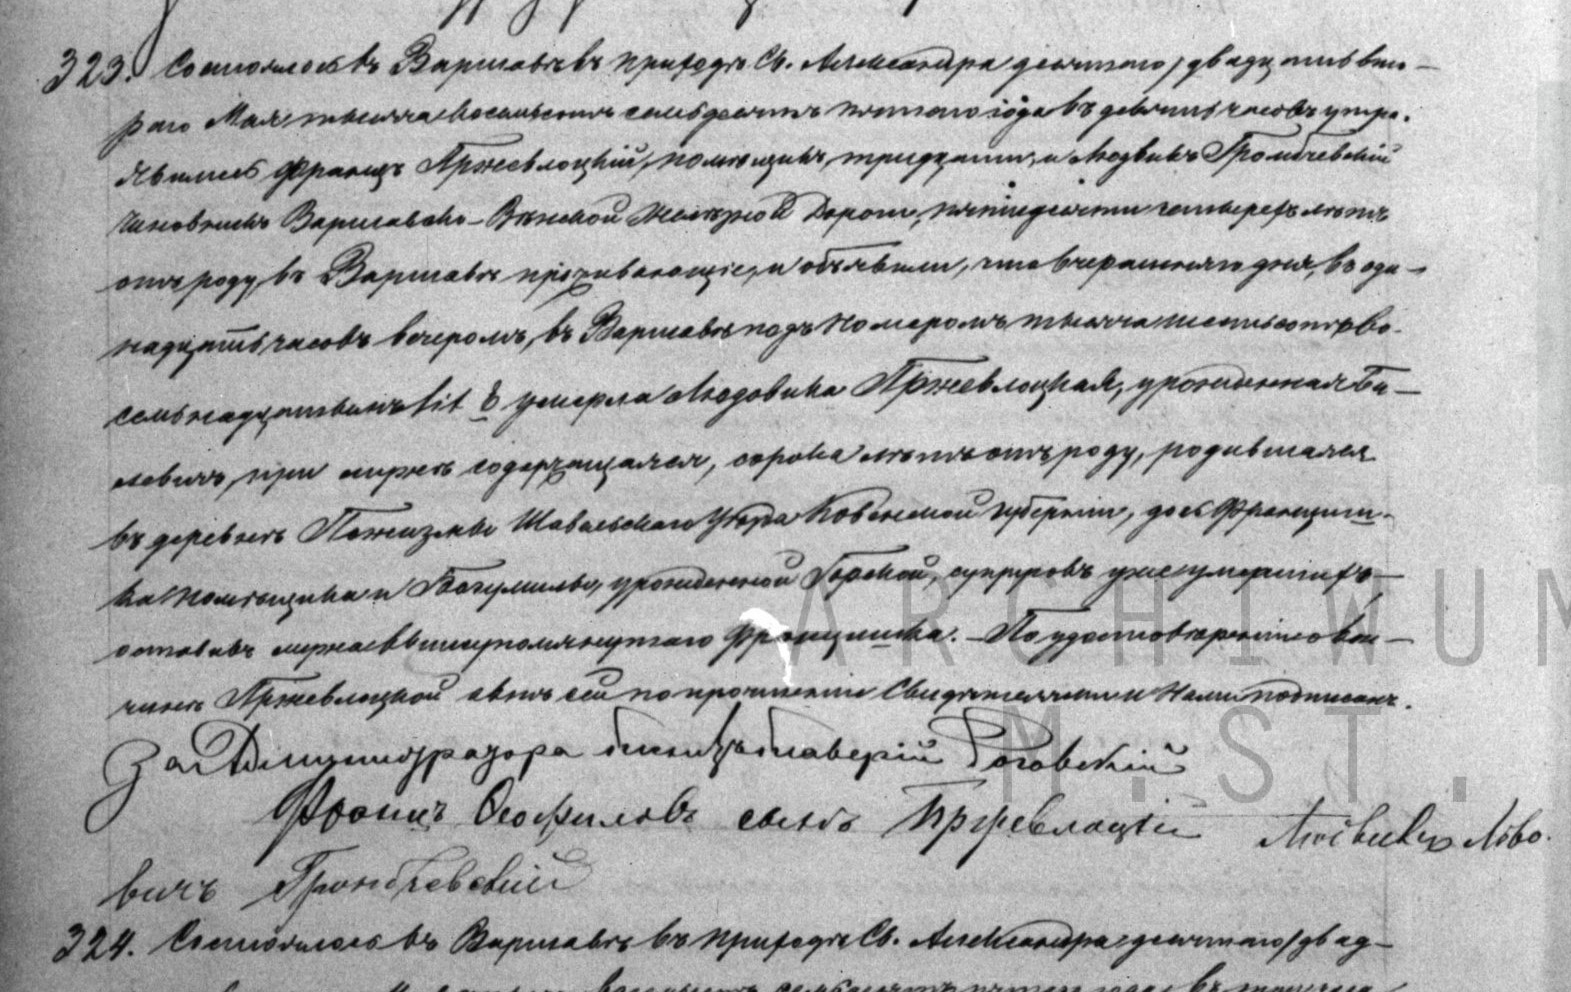 323. Состоялось въ Варшавѣ въ приходѣ Св. Александра десятаго / двадцать вто-
раго Мая тысяча восемьсотъ семьдесятъ пятаго года въ девять часовъ утра.
Явились Францъ Пржевлоцкій, помѣщикъ, тридцати, и Людвикъ Громбчевскій
чиновникъ Варшавско-Вѣнской Желѣзной Дороги, пятидесяти четырехъ лѣтъ
отъ роду, въ Варшавѣ проживающіе, и объявили, что вчерашняго дня, въ оди-
надцать часовъ вечеромъ, въ Варшавѣ подъ номеромъ тысяча шестьсотъ во-
семьнадцатымъ lit б умерла Людовика Пржевлоцкая, урожденная Би-
левичъ, при мужѣ содержащаяся, сорока лѣтъ отъ роду, родившаяся
въ деревнѣ Шавельскаго Уѣзда Ковенской губерніи, дочь Францишка
помѣщика и Богумилы, урожденной супруговъ уже умершихъ,
оставивъ мужа вышеупомянутаго Францишка. По удостовѣреніи о кон-
чинѣ Пржевлоцкой актъ сей по прочтеніи Свидѣтелями и Нами подписанъ.
За Администратора Ксендзъ Ксаверій Роговскій
Францъ Теофиловъ сынъ Пржевлоцкій Людвикъ Льво-
вичъ Громбчевскій
324. Состоялось въ Варшавѣ въ приходѣ Св. Александра десятаго / двад-